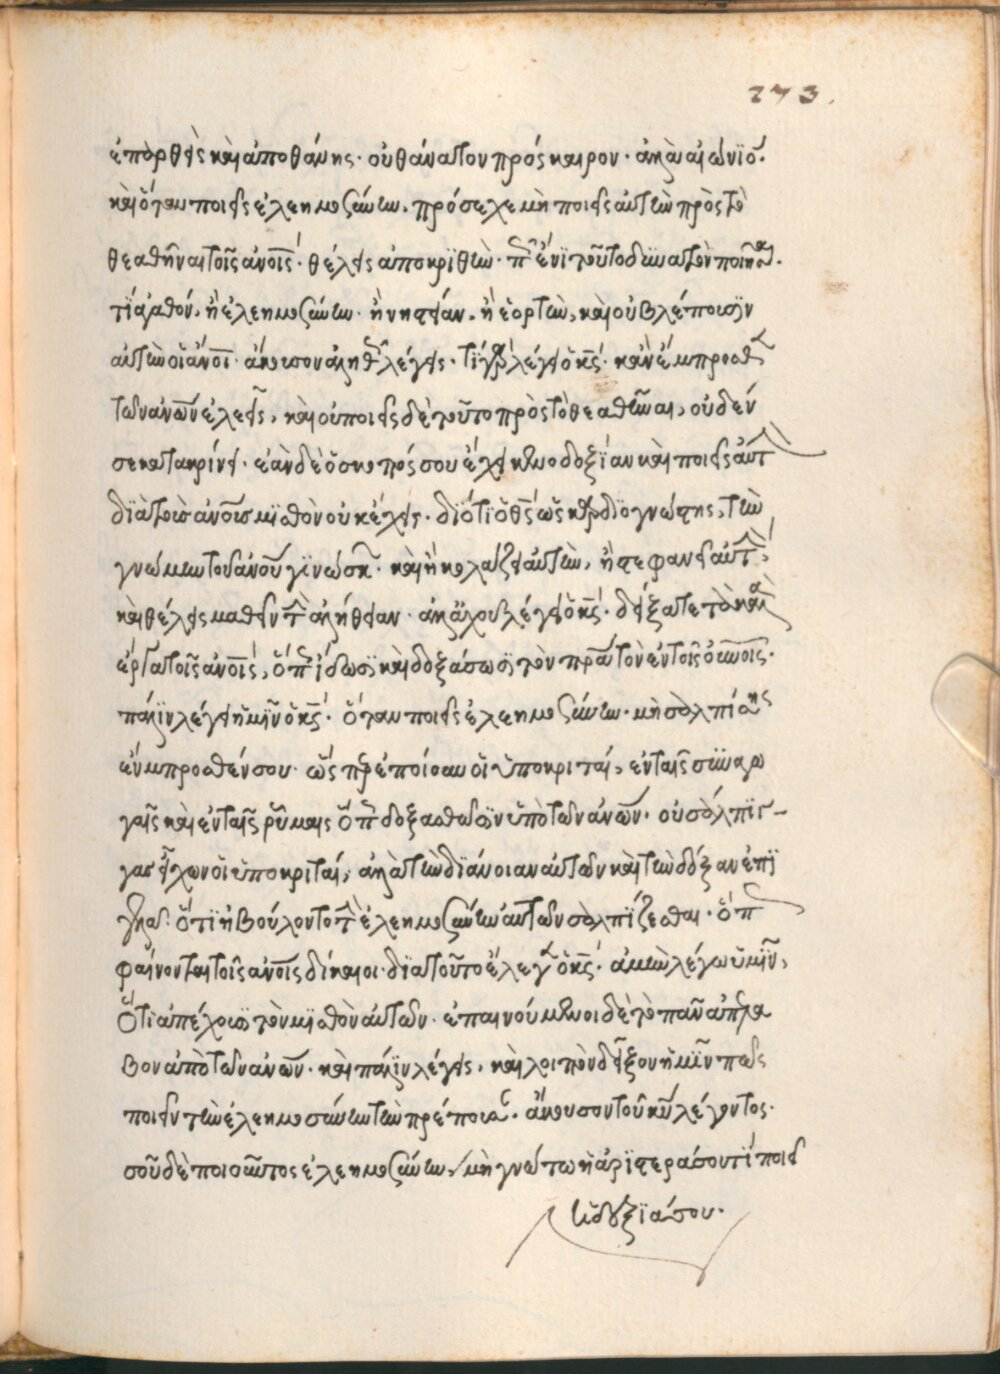 273.
ἐπαρθεὶς καὶ ἀποθάνης· οὐ θάνατον πρόσκαιρον· ἀλλὰ αἰώνιο.
καὶ ὅταν ποιεῖς ἐλεημοσύνην, πρόσεχε μὴ ποιεῖς αὐτὴν πρὸς τὸ
θεαθῆναι τοῖς ἀνοῖς· θέλεις ἀποκριθῶ· ἔνι τοῦτο δύνατὸν ποιῆσαι.
τί ἀγαθόν, ἢ ἐλεημοσύνην· ἢ νηστείαν, ἢ ἑορτὴν, καὶ οὐ βλέπουσιν
αὐτὴν οἱ ἄνοι· ἄκουσον ἀληθ λέγεις· τί γὰρ λέγει ὁ κς· κἂν ἔμπροσθ
τῶν ἀνων ἐλεεῖς, καὶ οὐ ποιεῖς δὲ τοῦτο πρὸς τὸ θεαθῆναι, οὐδέν
σε κατακρίνει· ἐὰν δὲ ὁ σκοπός σου ἔχει κενοδοξίαν καὶ ποιεῖς αὐτ
διὰ τοὺς ἀνους μισθὸν οὐκ ἔχεις· διότι ὁ θς ὡς καρδιογνώστης, τὴν
γνώμην τοῦ ἀνου γινώσκ· καὶ ἢ κολάζει αὐτὴν, ἢ στεφανεῖ αὐτ,
καὶ θέλεις μαθεῖν τ ἀλήθειαν· ἀλλαχοῦ λέγει ὁ κς· δείξατε τὰ καλὰ
ἔργα τοῖς ἀνοις, ὅπ ἴδωσι καὶ δοξάσωσι τὸν πρα τὸν ἐν τοῖς οὐνοις·
πάλιν λέγει ἡμῖν ὁ κς· ὅταν ποιεῖς ἐλεημοσύνην· μὴ σαλπίσης
ἔμπροσθέν σου· ὥσπερ ἐποίσαν οἱ ὑποκριταί, ἐν ταῖς συναγω
γαῖς καὶ ἐν ταῖς ρύμαις ὅπ δοξασθῶσιν ὑπὸ τῶν ἀνων· οὐ σάλπιγ-
γας εἶχων οἱ ὑποκριταί, ἀλλὰ τὴν διάνοιαν αὐτῶν καὶ τὴν δόξαν ἐπὶ
ὅτι ἠβούλοντο τ ἐλεημοσύνην αὐτῶν σαλπίζεσθαι· ὅπ
φαίνονται τοῖς ἀνοις δίκαιοι· διὰ τοῦτο ἔλεγ ὁ κς· ἀμὴν λέγω ὑμῖν,
ὅτι ἀπέχουσι τὸν μισθὸν αὐτῶν· ἐπαινούμενοι δὲ τὸ πᾶν ἀπέλα
βον ἀπὸ τῶν ἀνων· καὶ πάλιν λέγεις, καὶ λοιπὸν δεῖξον ἡμῖν πῶς
ποιεῖν τὴν ἐλεημοσύνην τὴν πρέπουσ. ἄκουσον τοῦ κυ λέγοντος·
σοῦ δὲ ποιοῦντος ἐλεημοσύνην, μὴ γνώτω ἡ ἀριστερά σου τί ποιεῖ
ἡ δεξιά σου·